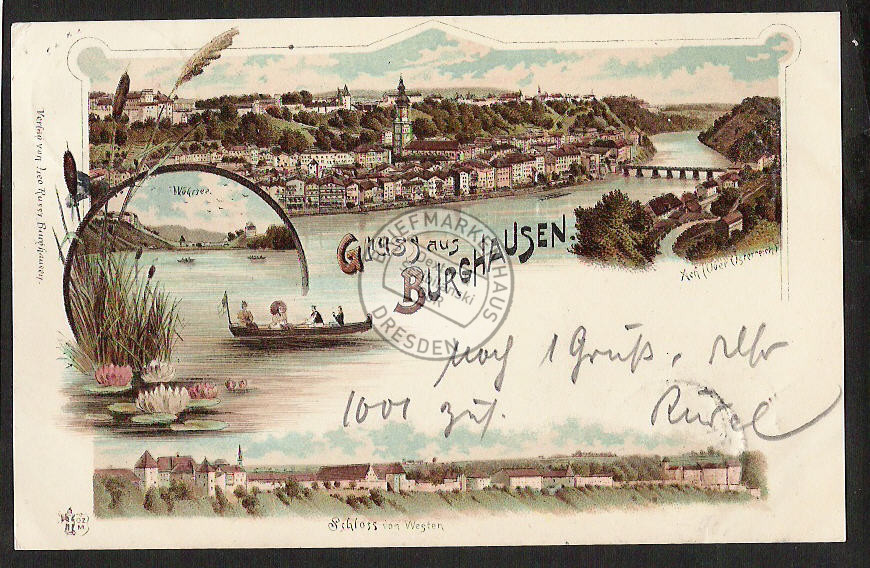 Verlag von Leo Russy, Burghausen.
Wöhrsee.
Gruss aus
BURGHAUSEN.
Ach (Ober Österreich)
BRIEFMARKENHAUS
DRESDEN
noch 1 Gruß,
1001
Rudel
Schloss von Westen